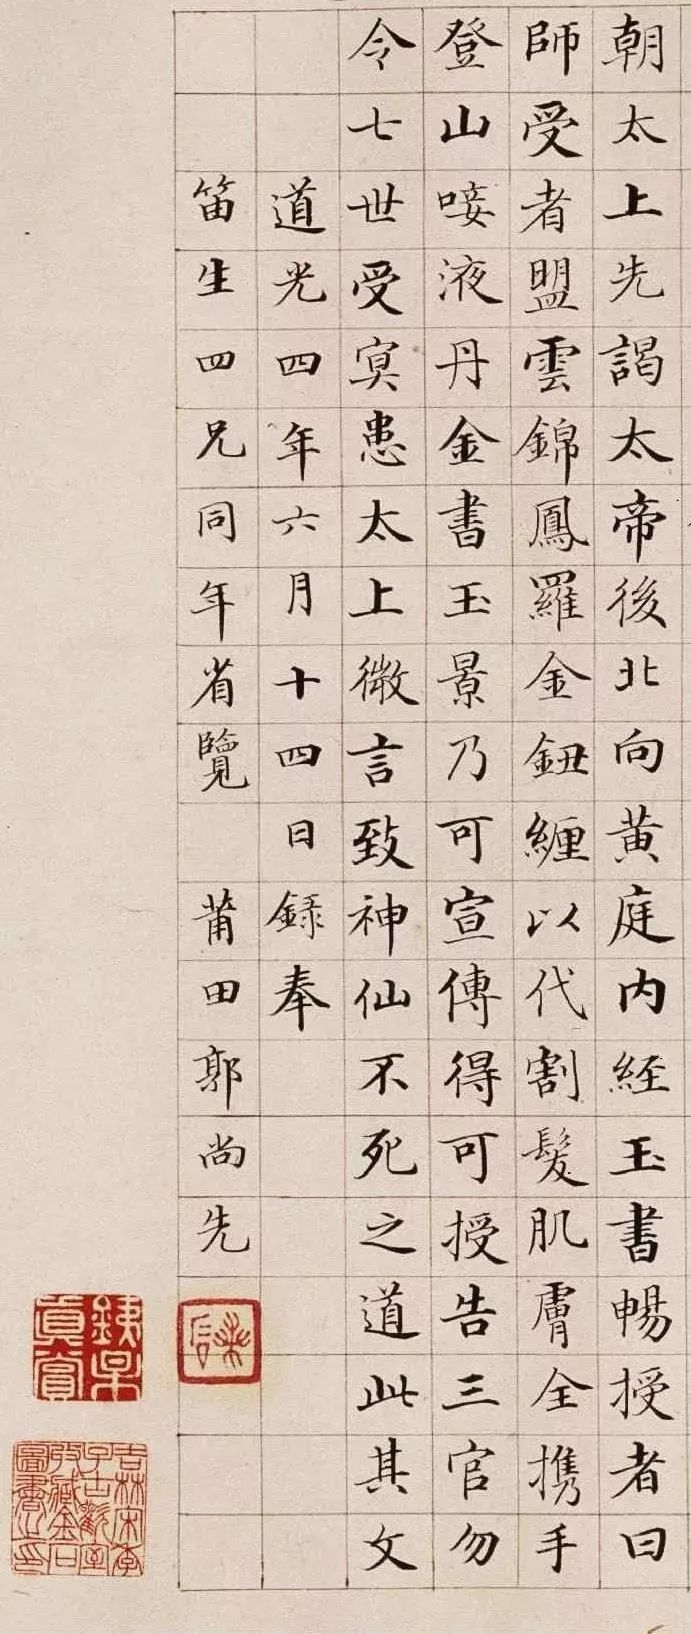 朝太上先謁太帝後北向黃庭內経玉書暢授者曰
師受者盟雲錦鳳羅金鈕纏以代割髮肌膚全攜手
登山唼液丹金書玉景乃可宣傳得可授告三官勿
令七世受冥患太上微言致神仙不死之道此其文
道光四年六月十四日錄奉
笛生四兄同年省覽 莆田郭尚先